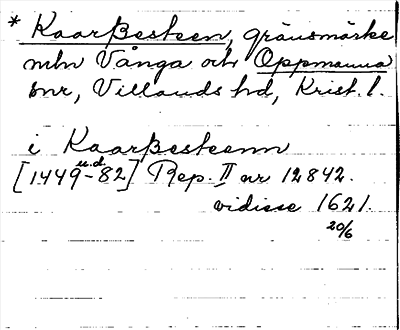 * Kaarßesteen, gränsmärke
mln Vånga och Oppmanna
snr, Villands hd, Krist. l.
i Kaarßesteenn
[1449 u.d. -82] Rep. II nr 12842.
vidisse 1621.
20/6